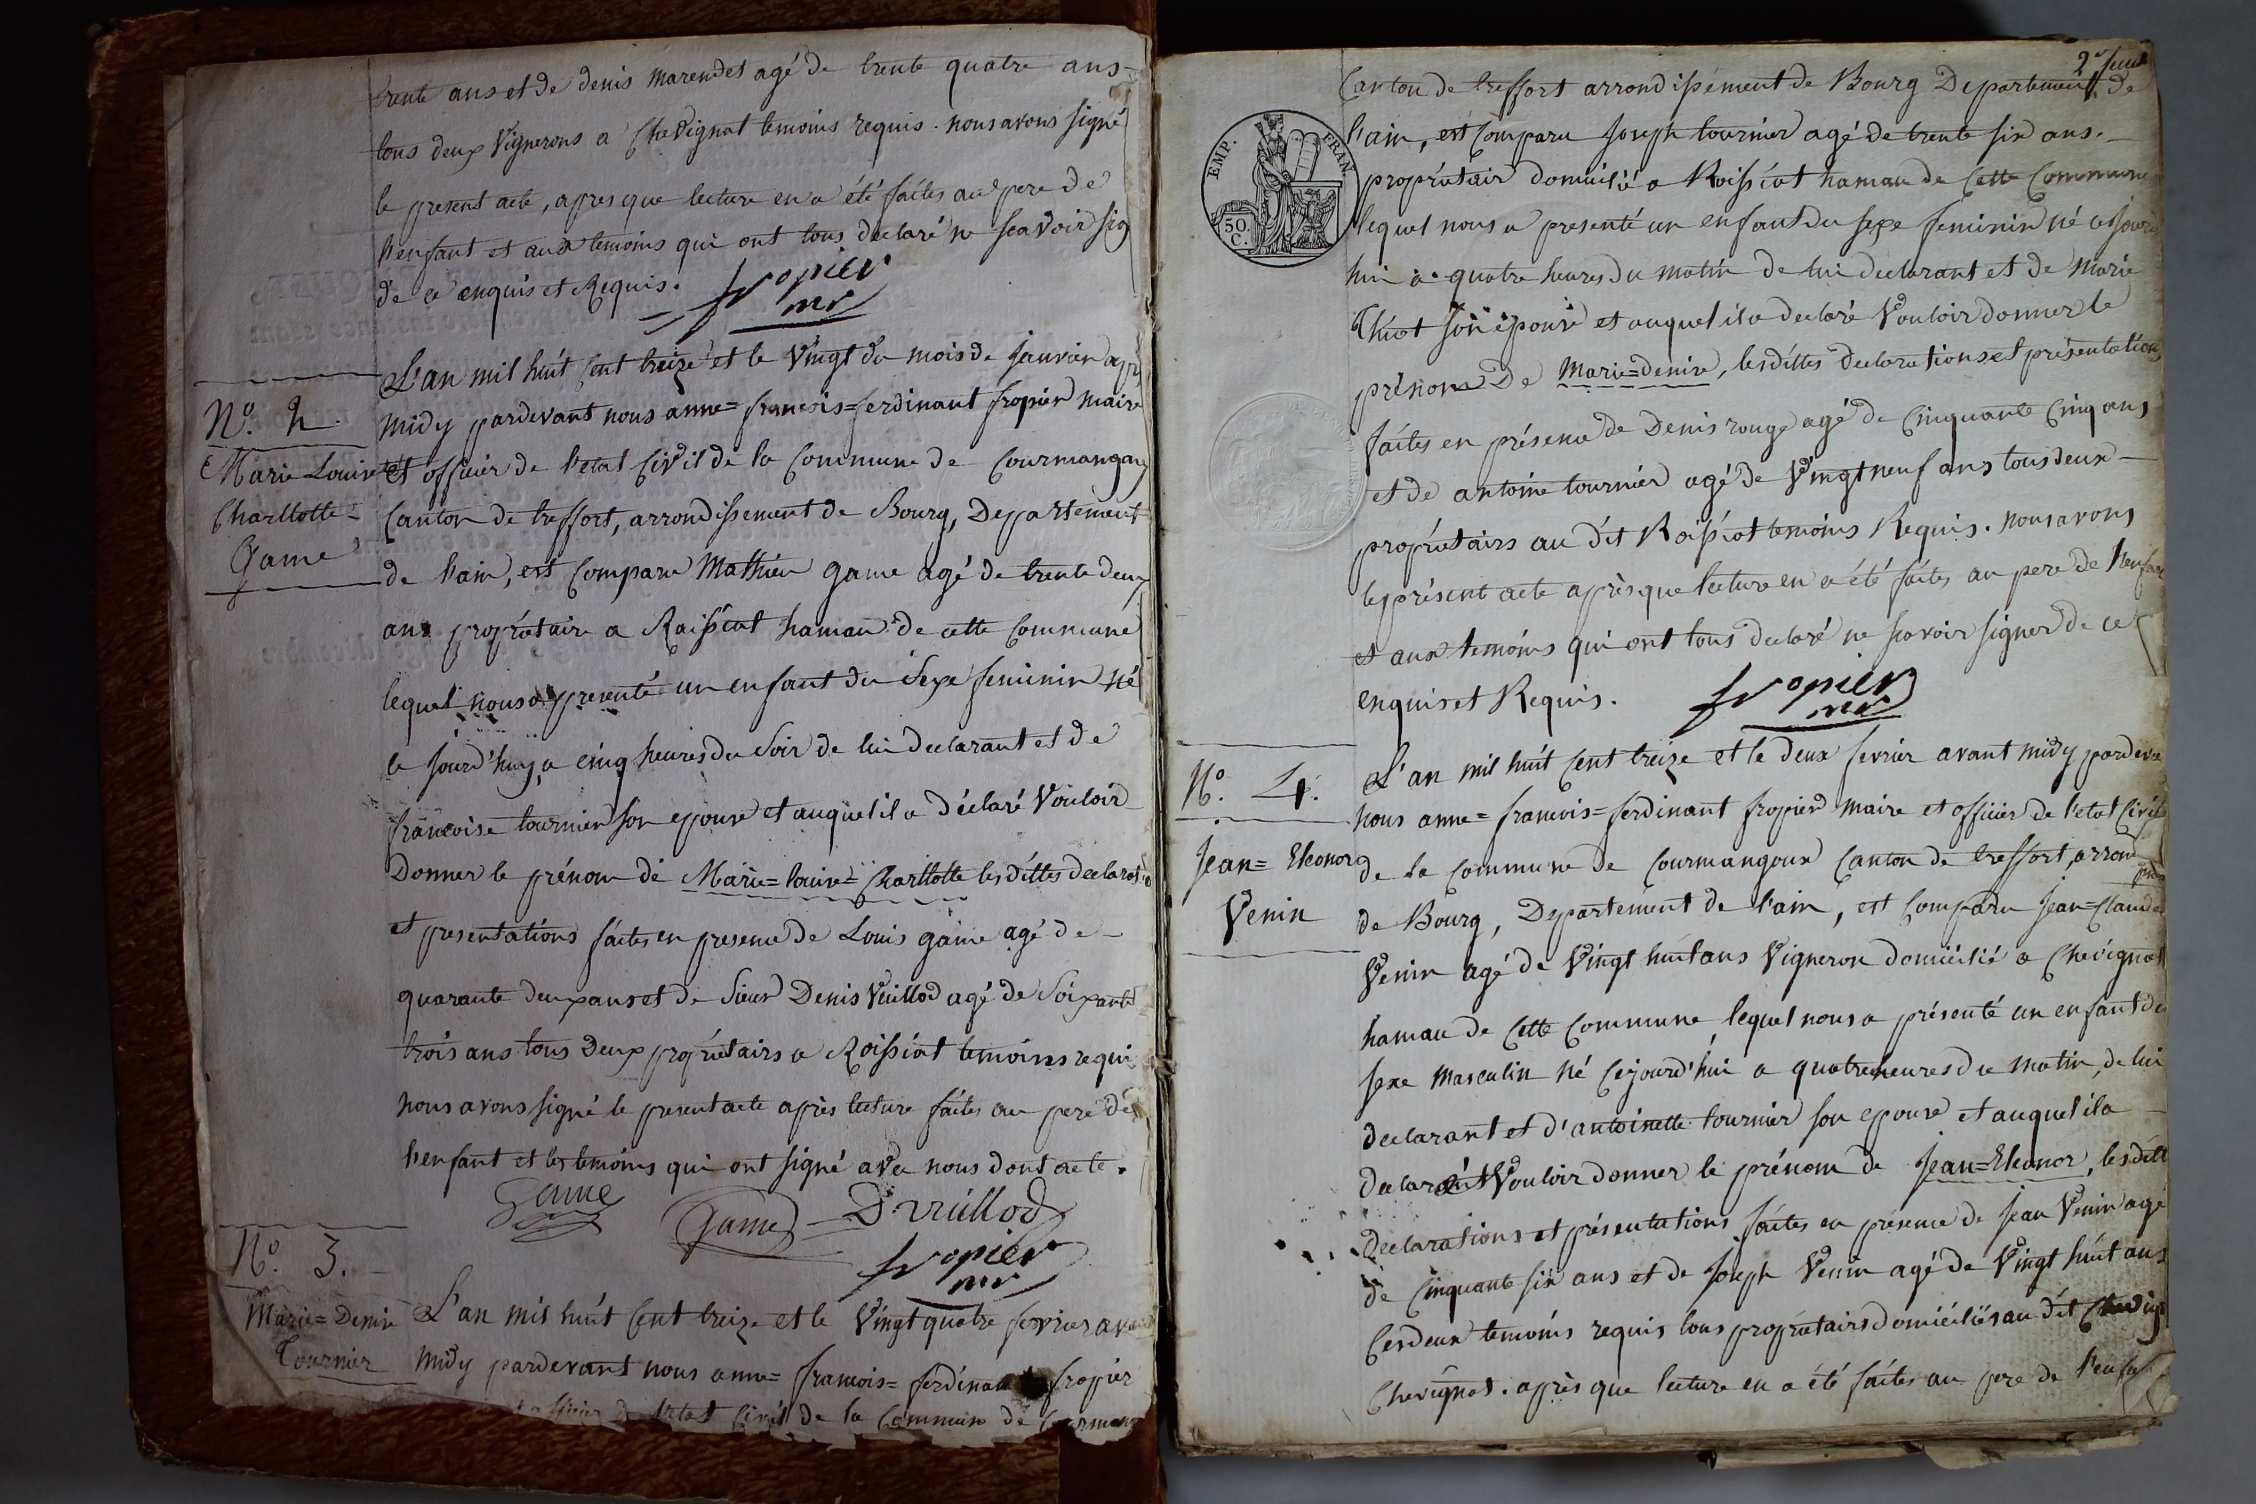 trente ans et de denis marendet agé de trente quatre ans
tous deux Vignerons a Chevignat temoins requis. nous avons signé
le present acte, apres que lecture en a été faites au pere de
l'enfant et aux temoins qui ont tous declaré ne scavoir sig
de ce enquis et Requis. fropier
mr
L'an mil huit Cent treize et le Vingt du mois de janvier apr
N°. 2.
midy pardevant nous anne=francois=ferdinant fropier maire
Marie Louise
et officier de l'etat Civil de la Commune de Courmangoux
Charllotte
Canton de treffort, arrondissement de Bourg, Departement
Game
de l'ain, est Comparu Mathieu game agé de trente deux
ans propriétaire a Roissiat hamau de cette Commune
lequel nous a presenté un enfant du Sexe feminin né
ce jourd'huy a cinq heures du Soir de lui declarant et de
francoise tournier son epouse et auquel il a déclaré Vouloir
Donner le prénom de Marie=louise=Charllotte les dittes declaratio
et presentations faites en presence de Louis game agé de
quarante deux ans et de Sieur Denis Vuillod agé de Soixante
trois ans tous Deux propriétairs a Roissiat temoins requi
nous avons signé le present acte après lecture faites au pere de
l'enfant et les temoins qui ont signé avec nous dont acte.
Game Game D. vuillod
fropier
mr
N°. 3.
Marie=Denise
L'an mil huit Cent treize et le Vingt quatre fevrier avant
Tournier
midy pardevant nous anne=francois=ferdinant fropier
officier de l'etat Civil de la Commune de Courman
2e feuil
Canton de treffort arrondissement de Bourg Departement de
EMP. FRAN.
50. C.
l'ain, est Comparu Joseph tournier agé de trente six ans.
propriétair domicilié a Roissiat hamau de Cette Commune
lequel nous a presenté un enfant du sexe feminin né cejourd
hui a quatre heures du matin de lui declarant et de marie
Thiot son epouse et auquel il a declaré Vouloir donner le
prénom De Marie=denise, les dittes declarations et présentations
faites en présence de Denis rouge agé de Cinquante Cinq ans
et de antoine tournier agé de Vingt neuf ans tous deux
propriétairs au dit Roissiat temoins Requis. nous avons
le présent acte après que lecture en a été faites au pere de l'enfan
et aux temoins qui ont tous declaré ne scavoir signer de ce
enquis et Requis. fropier
mr
L'an mil huit Cent treize et le deux fevrier avant midy pardeva
N°. 4.
nous anne=francois=ferdinant fropier maire et officier de l'etat Civil
Jean=Eleonor
de la Commune de Courmangoux Canton de treffort, arron
Venin
de Bourg, Departement de l'ain, est Comparu Jean=Claude
Venin agé de Vingt huit ans Vigneron domicilié a Chevignat
hamau de Cette Commune lequel nous a présenté un enfant du
sexe masculin né Cejourd'hui a quatre heures du matin, de lui
declarant et d'antoinette tournier son epouse et auquel il a
declaré Vouloir donner le prénom de Jean=Eleonor, les ditt
declarations et présentations faites en présence de Jean Venin agé
de Cinquante six ans et de Joseph Venin agé de Vingt huit ans
Ces deux temoins requis tous propriétairs domiciliés au dit
Chevignat. après que lecture en a été faites au pere de l'enfa